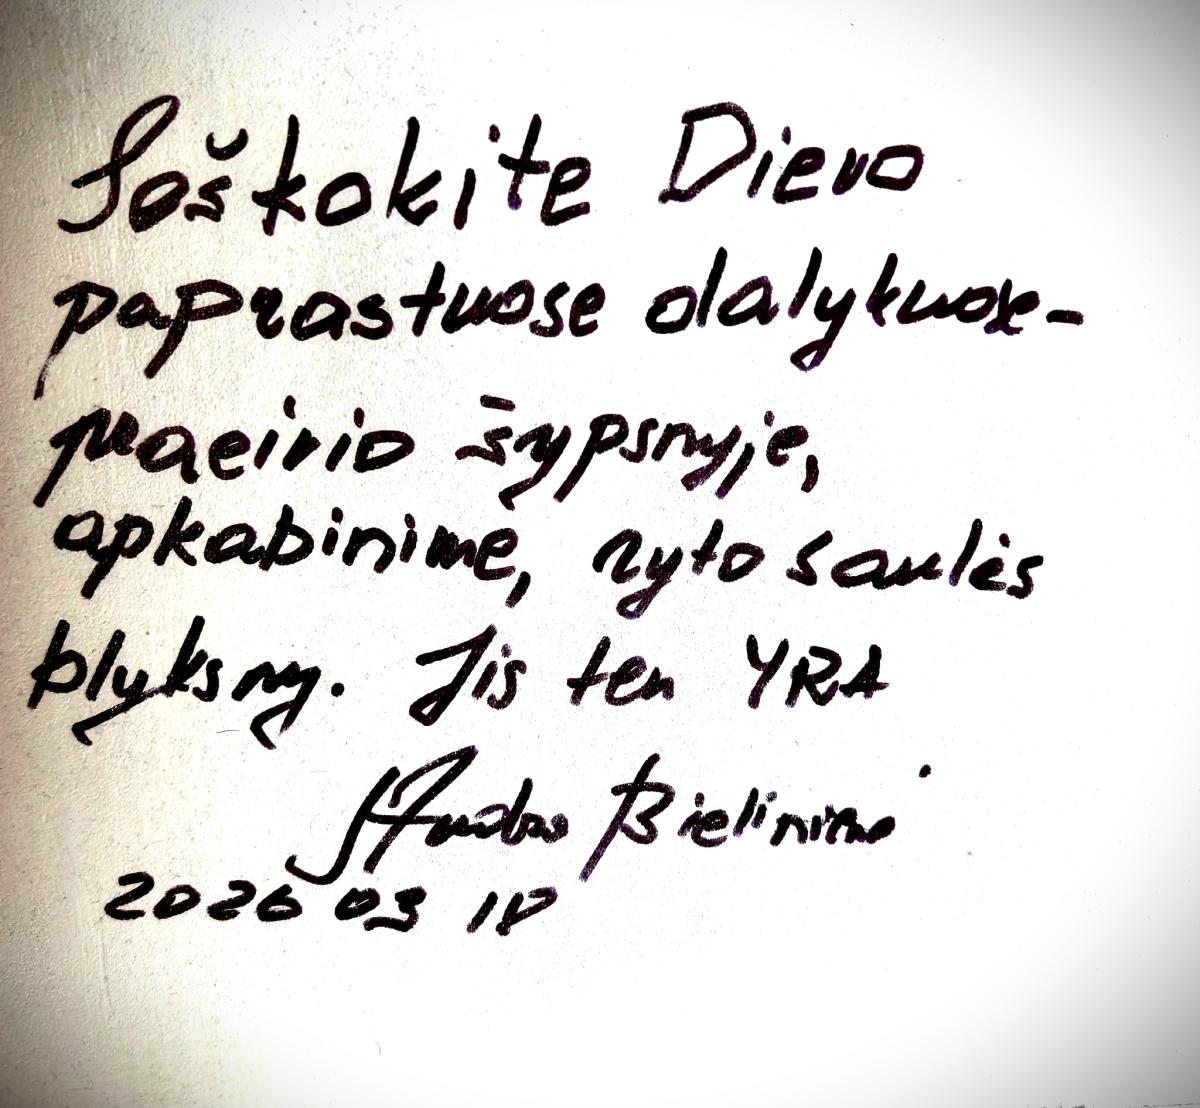 Ieškokite Dievo
paprastuose dalykuose-
praeivio šypsnyje,
apkabinime, ryto saulės
blyksny. Jis ten YRA
Bielinienė
2026 03 18